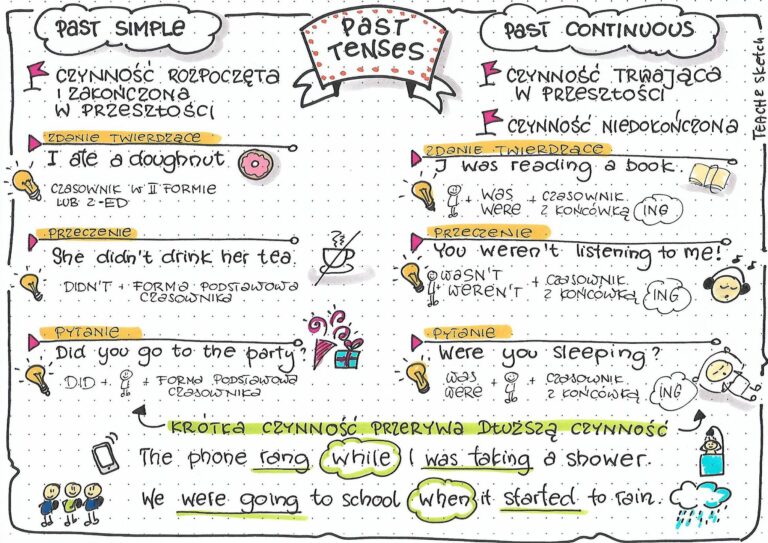 PAST SIMPLE
PAST
TENSES
PAST CONTINUOUS
CZYNNOŚĆ ROZPOCZĘTA
I ZAKOŃCZONA
W PRZESZŁOŚCI
CZYNNOŚĆ TRWAJĄCA
W PRZESZŁOŚCI
CZYNNOŚĆ NIEDOKOŃCZONA
TEACHE SKETCH
ZDANIE TWIERDZĄCE
I ate a doughnut.
CZASOWNIK W II FORMIE
LUB Z -ED
PRZECZENIE
She didn't drink her tea.
DIDN'T + FORMA PODSTAWOWA
CZASOWNIKA
PYTANIE
Did you go to the party?
DID + + FORMA PODSTAWOWA
CZASOWNIKA
ZDANIE TWIERDZĄCE
I was reading a book.
+ WAS + CZASOWNIK
WERE Z KOŃCÓWKĄ ING
PRZECZENIE
You weren't listening to me!
WASN'T + CZASOWNIK
+ WEREN'T Z KOŃCÓWKĄ ING
PYTANIE
Were you sleeping?
WAS + + CZASOWNIK
WERE Z KOŃCÓWKĄ ING
KRÓTKA CZYNNOŚĆ PRZERYWA DŁUŻSZĄ CZYNNOŚĆ
The phone rang while I was taking a shower.
We were going to school when it started to rain.